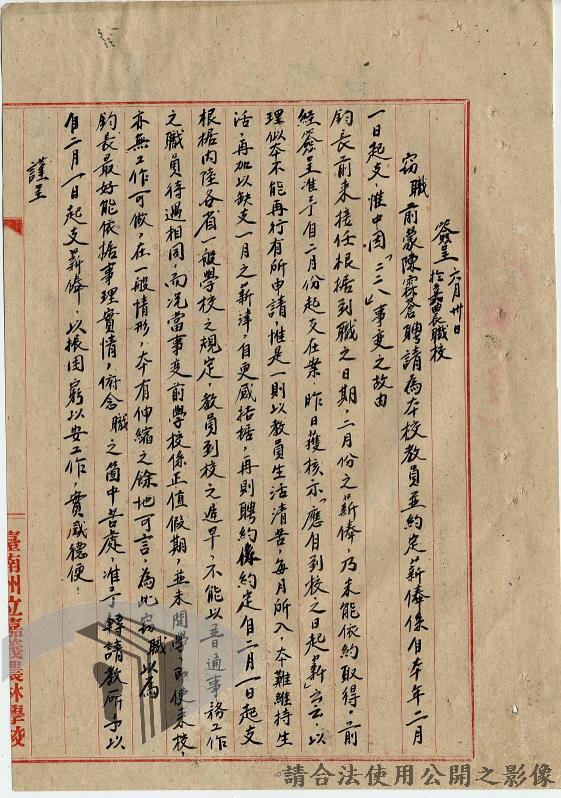 簽呈 六月卅日
於嘉農職校
竊職前蒙陳霖蒼聘請為本校教員並約定薪俸係自本年二月
一日起支，惟中因「二二八」事变之故由
鈞長前來接任根据到職之日期，二月份之薪俸，乃未能依約取得，前
經簽呈准予自二月份起支在業，昨日獲核示「應自到校之日起薪」云云，以
理似本不能再行有所申請，惟是一則以教員生活清苦，每月所入，本難維持生
活，再加以缺支一月之薪津，自更感拮据，再則聘約係約定自二月一日起支
根据內陸各省一般學校之規定，教員到校之遲早，不能以普通事務工作
之職員待遇相同，而況當事变前學校係正值假期，並未開學，即使來校，
亦無工作可做，在一般情形，本有伸縮之餘地可言，為此竊職以為
鈞長最好能依据事理實情，俯念職之箇中苦處，准予轉請教所予以
自二月一日起支薪俸，以振困窮以安工作，實感德便！
謹呈
臺南州立嘉義農林學校
請合法使用公開之影像